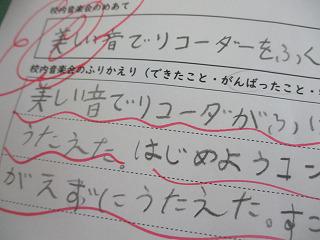 校内音楽会のめあて
美しい音でリコーダーをふく
校内音楽会のふりかえり（できたこと・がんばったこと・
美しい音でリコーダがふ
うたえた。はじめようコン
がえずにうたえた。すこ